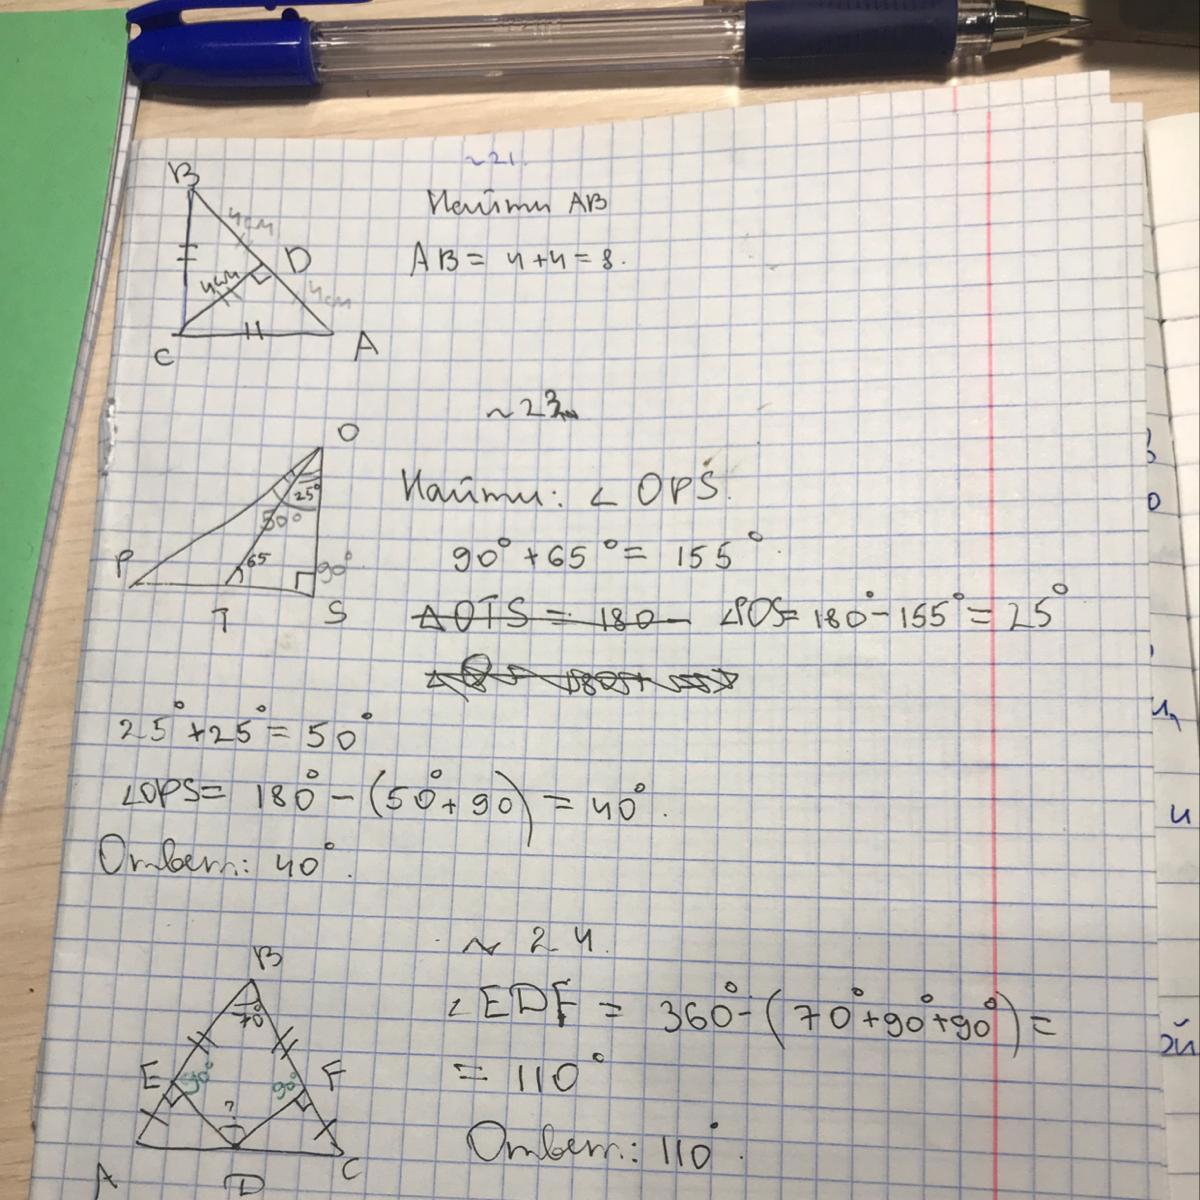 ~21.
B
4см
D
4см
4см
C
A
Найти AB
AB = 4+4=8.
~23
O
25°
50°
P
65
90°
T
S
Найти: ∠ OPS.
90° + 65° = 155°.
∆OTS = 180 - ∠POS= 180° - 155° = 25°
25° + 25° = 50°
∠OPS= 180° - (50° + 90) = 40°.
Ответ: 40°.
B
70°
E
90°
90°
F
?
A
D
C
~ 24.
∠EDF = 360° - (70° + 90° + 90°) =
= 110°
Ответ: 110°.